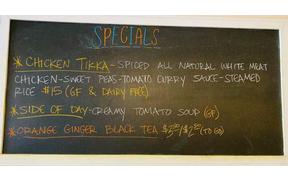 SPECIALS
* CHICKEN TIKKA - SPICED ALL NATURAL WHITE MEAT
CHICKEN - SWEET PEAS - TOMATO CURRY SAUCE - STEAMED
RICE $15 (GF & DAIRY FREE)
* SIDE OF DAY - CREAMY TOMATO SOUP (GF)
* ORANGE GINGER BLACK TEA (TO GO)